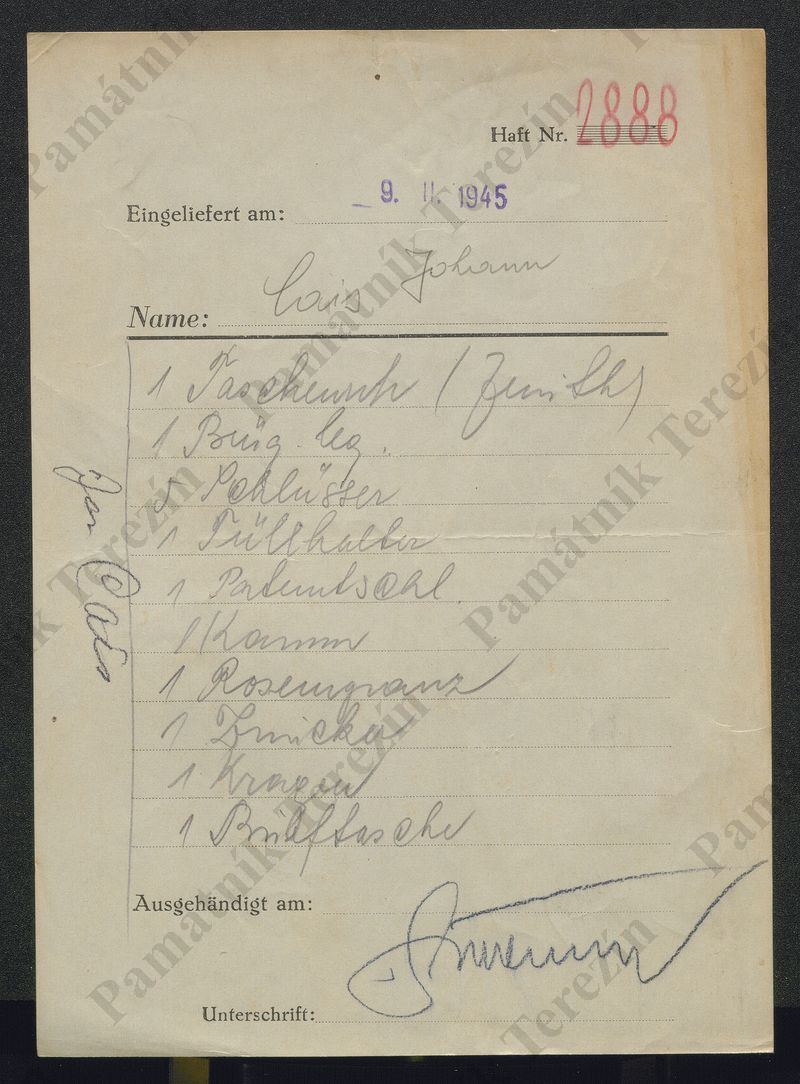 Haft Nr. 2888
Eingeliefert am: 9. II. 1945
Name: Cais Johann
1 Taschenuh (Zenith)
1 Bürg. leg.
5 Schlüsser
1 Füllhalter
1 Patentschl.
1 Kamm
1 Rosengranz
1 Zwicker
1 Kragen
1 Brieftasche
Jan
Ausgehändigt am:
Unterschrift:
Památník Terezín